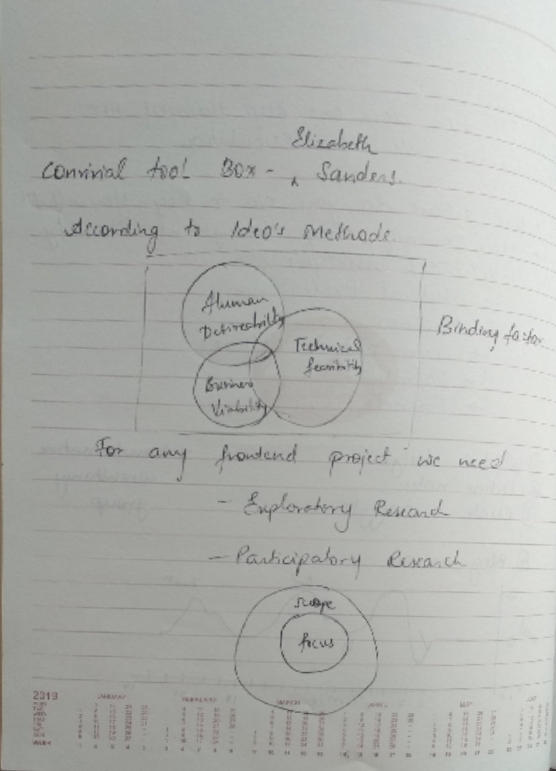 Elizabeth
Convivial tool Box - ^ Sanders.
According to Ideo's Methods.
Human
Desireability
Technical
feasibility
Business
Viability
Binding factor
For any frontend project we need
- Exploratory Research
- Participatory Research
scope
focus
2019
JANUARY
FEBRUARY
MARCH
APRIL
MAY